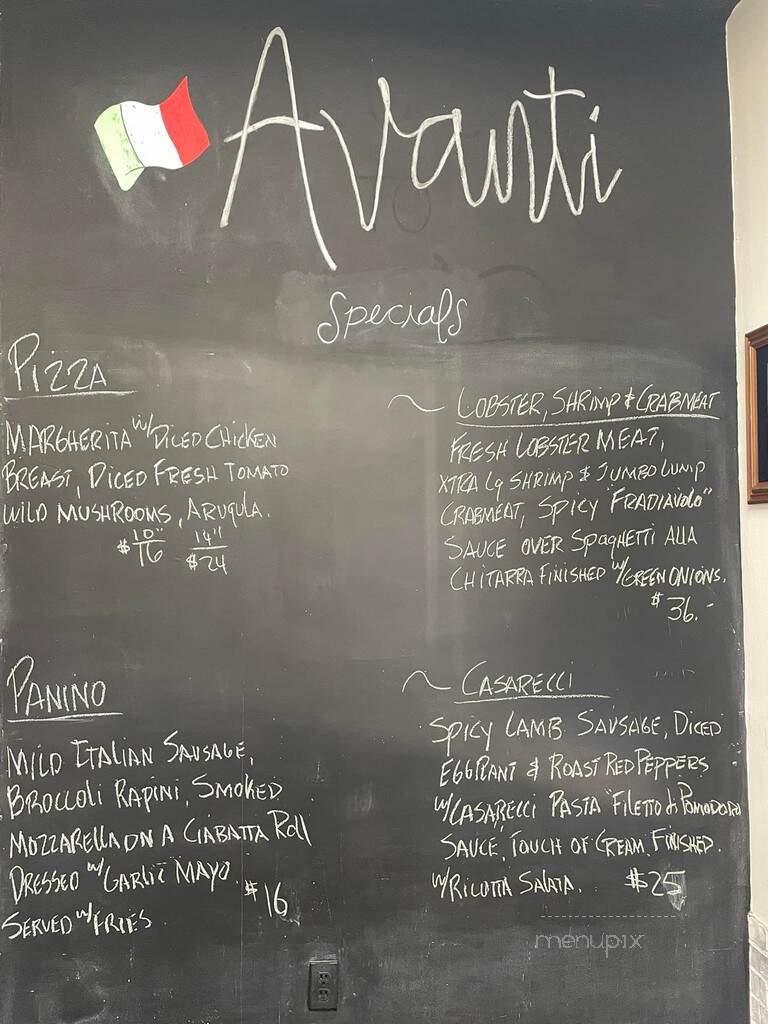 Avanti
Specials
PIZZA
MARGHERITA w/ DICED CHICKEN
BREAST, DICED FRESH TOMATO
WILD MUSHROOMS, ARUGULA.
10" 14"
$16 $24
PANINO
MILD ITALIAN SAUSAGE,
BROCCOLI RAPINI, SMOKED
MOZZARELLA ON A CIABATTA ROLL
DRESSED w/ GARLIC MAYO.
$16
SERVED w/ FRIES
~ LOBSTER, SHRIMP & CRABMEAT
FRESH LOBSTER MEAT,
XTRA Lg SHRIMP & JUMBO LUMP
CRABMEAT, SPICY "FRADIAVOLO"
SAUCE OVER SPAGHETTI ALLA
CHITARRA FINISHED w/ GREEN ONIONS.
$36.-
~ CASARECCI
SPICY LAMB SAUSAGE, DICED
EGGPLANT & ROAST RED PEPPERS
w/ CASARECCI PASTA "FILETTO di POMODORO
SAUCE, TOUCH OF CREAM. FINISHED.
w/ RICOTTA SALATA. $25
menupix